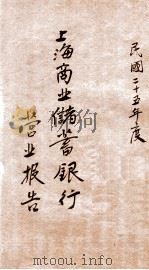 民國二十五年度
上海商业儲蓄銀行
营业报告
mtoou.info